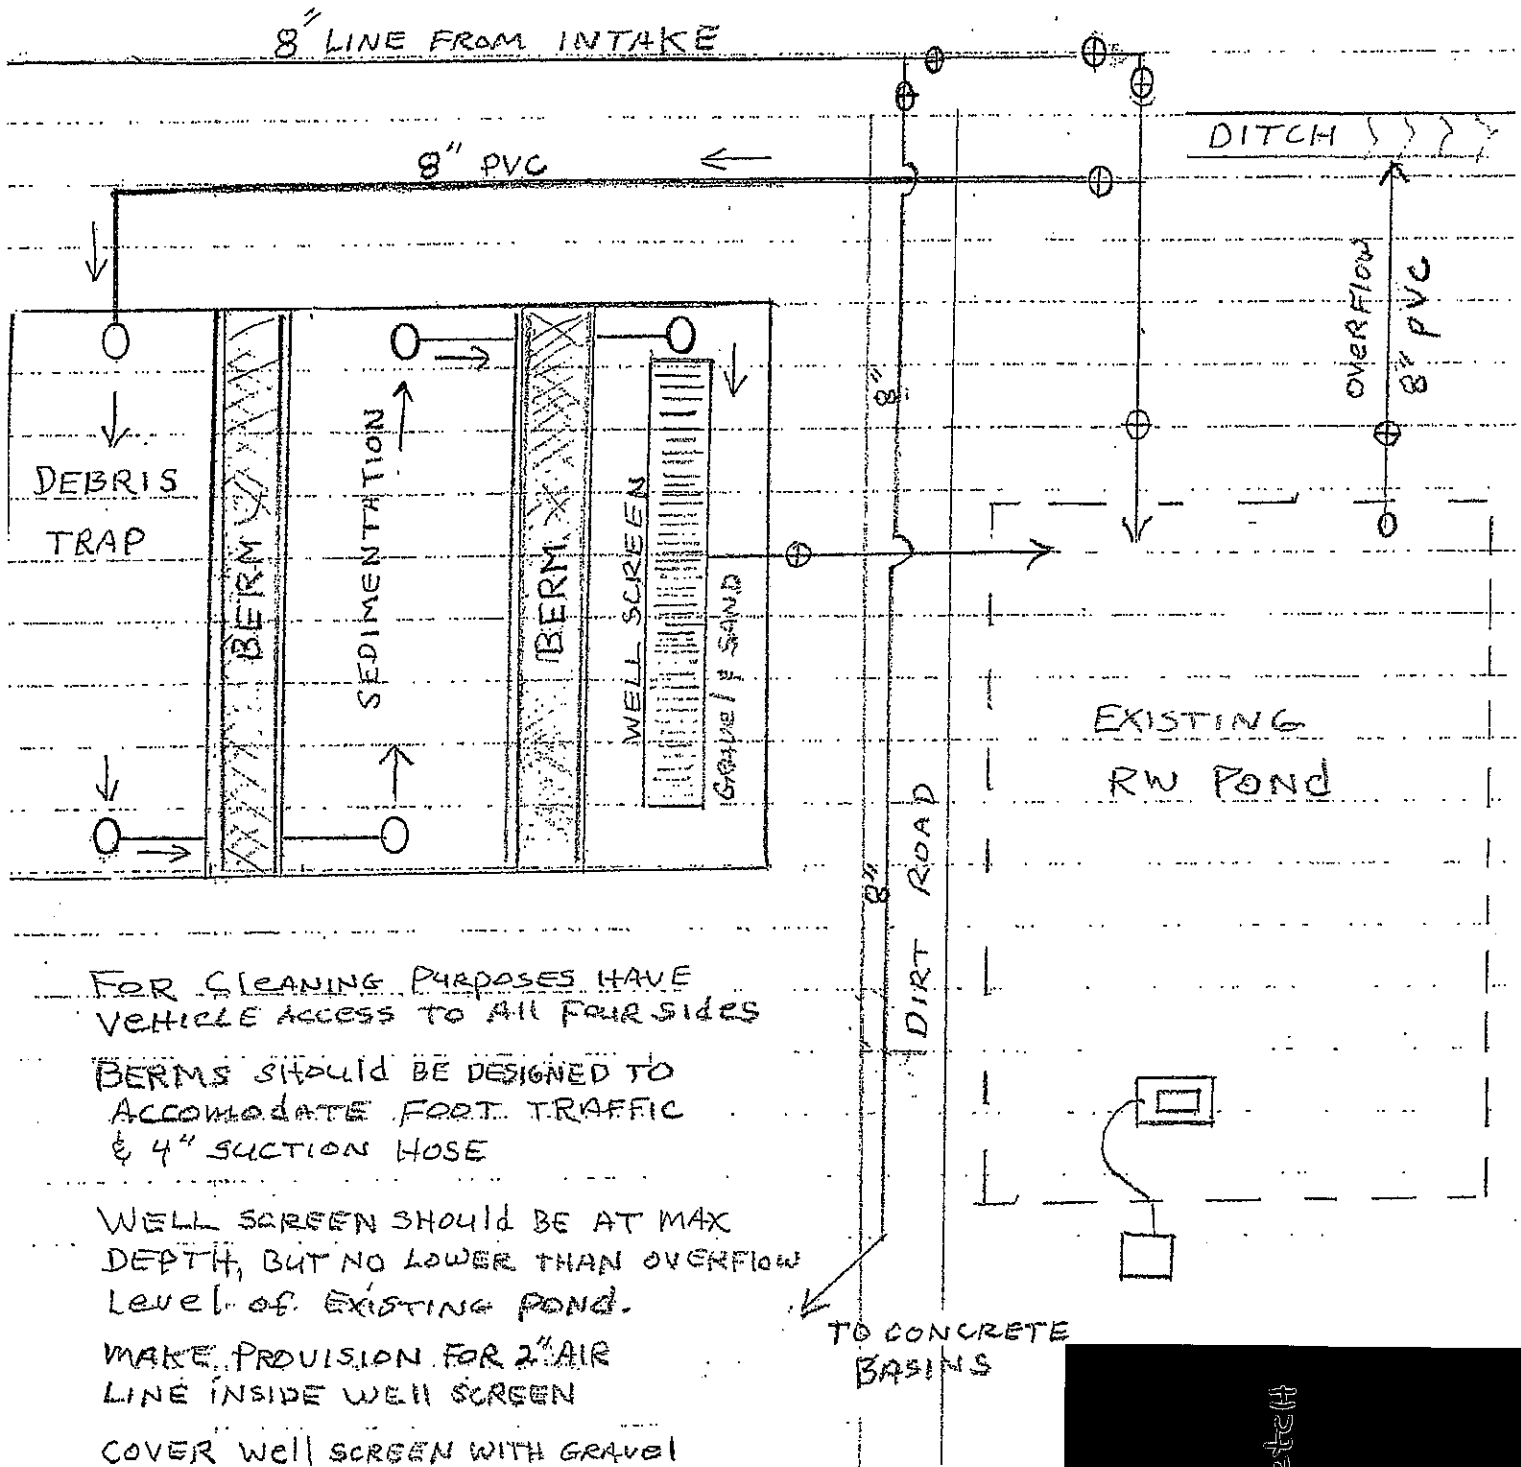 8" LINE FROM INTAKE
DITCH
8" PVC
OVERFLOW
8" PVC
8"
DEBRIS
TRAP
BERM
SEDIMENTATION
BERM
WELL SCREEN
GRAVEl & SAND
EXISTING
RW POND
8"
DIRT ROAD
FOR ClEANING PURPOSES HAVE
VEHICLE ACCESS TO All FOUR SIdes
BERMS SHOUld BE DESIGNED TO
ACCOMOdATE FOOT TRAFFIC
& 4" SUCTION HOSE
WELL SCREEN SHOUld BE AT MAX
DEPTH, BUT NO LOWER THAN OVERFlOW
Level of EXISTING POND.
MAKE PROVISION FOR 2" AIR
LINE INSIDE WEll SCREEN
COVER Well SCREEN WITH GRAVEl
TO CONCRETE
BASINS